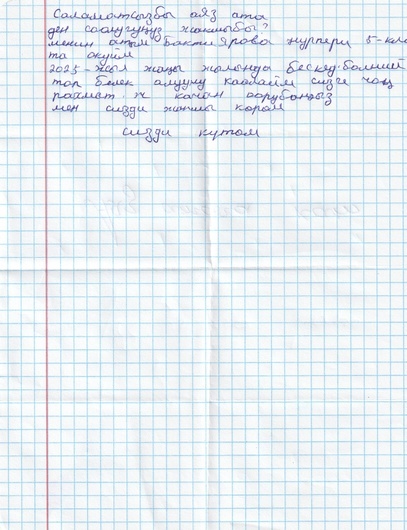 Саламатсызбы аяз ата
ден соолугуңуз жакшыбы?
менин атым Бактиярова нурпери 5-кла
та окуйм
2025-жыл жаңы жылында баскед.больший
тор белек алууну каалайм сизге чоң
рахмат эч качан оорубаңыз
мен сизди жакшы көрөм
сизди күтөм